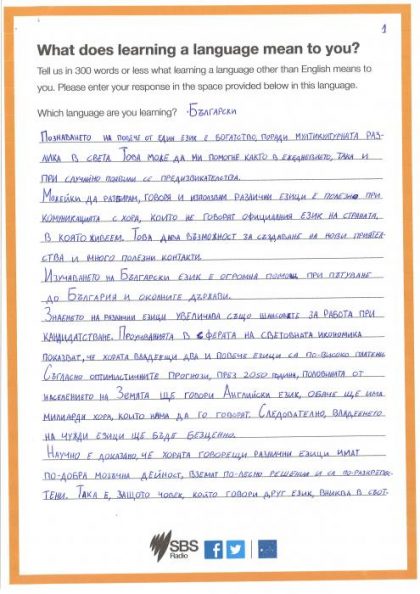 1
What does learning a language mean to you?
Tell us in 300 words or less what learning a language other than English means to
you. Please enter your response in the space provided below in this language.
Which language are you learning? Български
Познаването на повече от един език е богатство, поради мултикултурната раз-
лика в света. Това може да ми помогне както в ежедневието, така и
при случайно появили се предизвикателства.
Можейки да разбирам, говоря и използвам различни езици е полезно при
комуникацията с хора, които не говорят официалния език на страната,
в която живеем. Това дава възможност за създаване на нови приятел-
ства и много полезни контакти.
Изучаването на Български език е огромна помощ при пътуване
до България и околните държави.
Знаенето на различни езици увеличава също шансовете за работа при
кандидатстване. Проучванията в сферата на световната икономика
показват, че хората владеещи два и повече езици са по-високо платени.
Съгласно оптимистичните прогнози, през 2050 година, половината от
населението на Земята ще говори Английски език, обаче ще има
милиарди хора, които няма да го говорят. Следователно, владеенето
на чужди езици ще бъде безценно.
Научно е доказано, че хората говорещи различни езици имат
по-добра мозъчна дейност, вземат по-лесно решения и са по-разкрепос-
тени. Така е, защото човек, който говори друг език, вниква в свет-
SBS
Radio